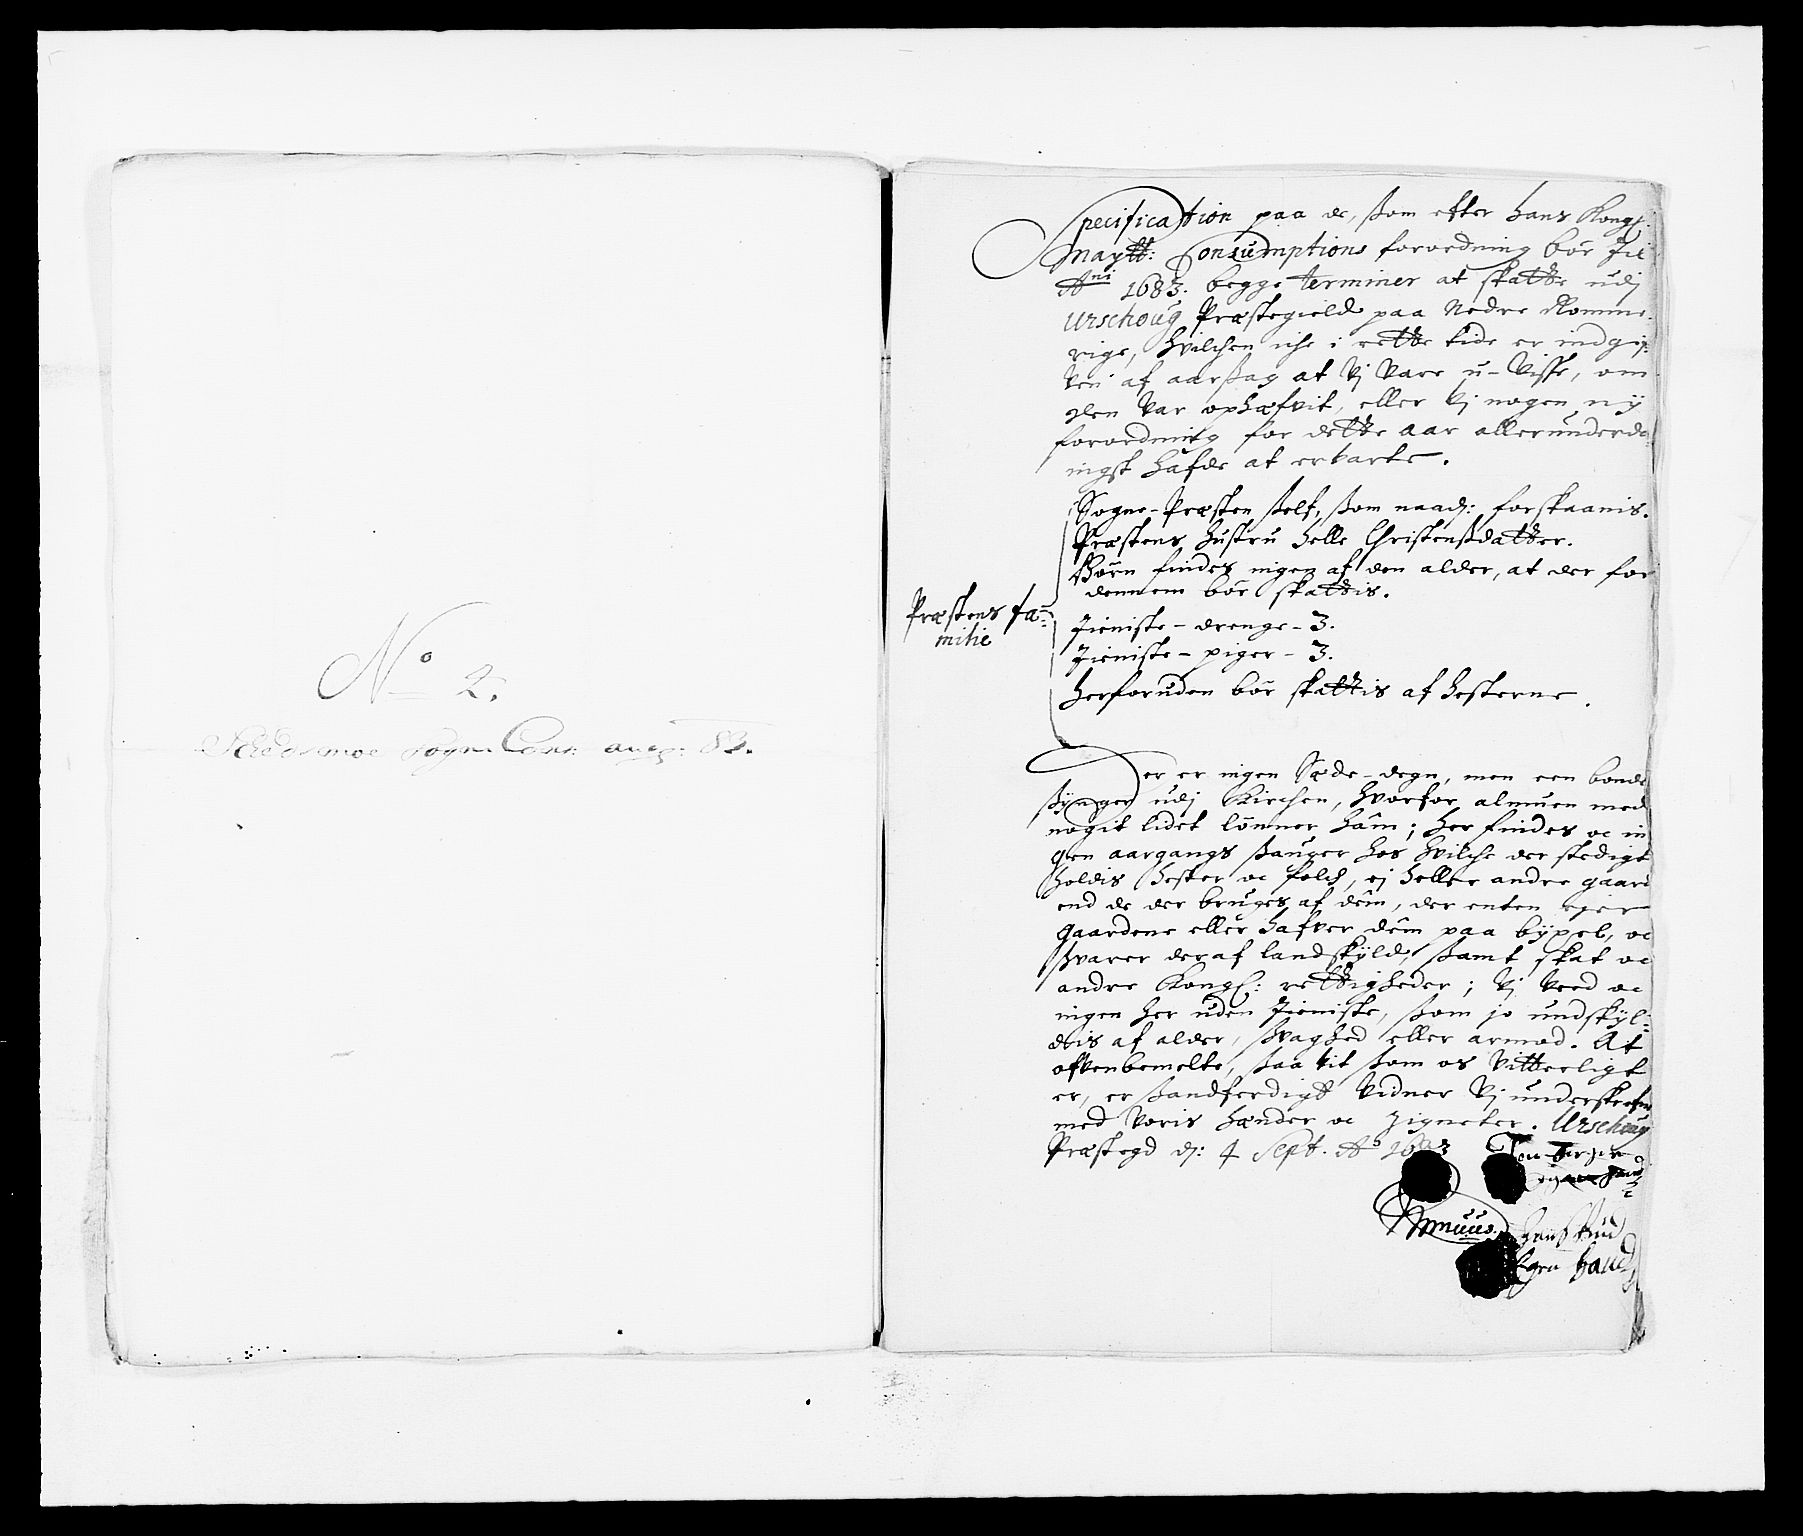 No 2.
Skedsmoe Sogns Cons: ang: 83.
Specification paa de, som efter hans Kongl:
Maytt: Consumptions forordning bör til
Ani 1683. begge terminer at skatte udj
Urschoug Præstegield paa Nedre Romme
rige, hvilchen iche i rette tide er indgif:
ven af aarsag at vj vare u-visse, om
den var ophæfvit, eller vj nogen ny
forordning for dette aar allerunderda:
nigst hafde at ervarte.
Sogne-Præsten self, som naad: forskaanis.
Præstens hustru Helle Christensdatter.
Börn findes ingen af den alder, at der for
dennem bör skattis.
Præstens fa:
milie
Tieniste-drenge-3.
Tieniste-piger-3.
Herforuden bör skattis af hesterne.
Der er ingen Sæde-degn, men een bonde
synger udj Kirchen, hvorfor almuen med
nogit lidet lönner ham; her findes oc in
gen aargangs sauger hos hvilche der stedigt
holdis hester oc folch, ej heller andre gaard
end de der bruges af dem, der enten ejer
gaardene eller hafver dem paa byxel, oc
svarer deraf landskyld, samt skat oc
andre Kongl: rettigheder; vj veed oc
ingen her uden tieniste, som jo undskyl:
dis af alder, svaghed eller armod. At
ofvenbemelte, saa vit som os vitterligt
er, er sandferdigt vidner vj underskrefne
med voris hænder oc zigneter. Urschoug
Præstegd d: 4 Sept. Ao 1683
hand
Egen haand